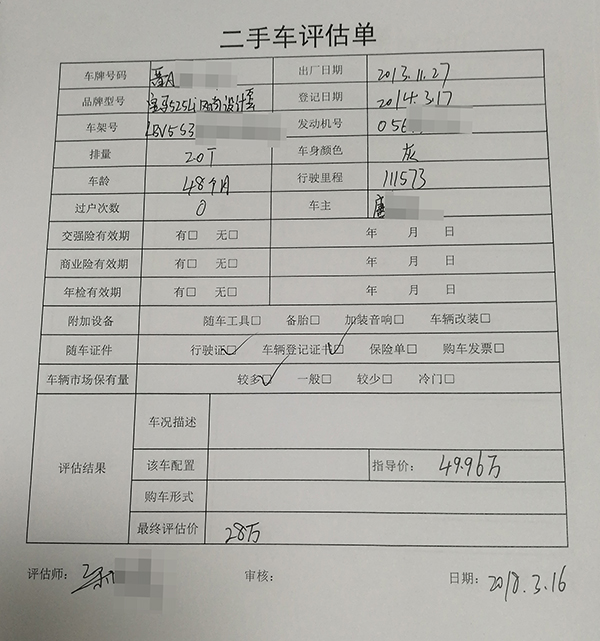 二手车评估单
车牌号码 晋A 出厂日期 2013.11.27
品牌型号 宝马525Li 风尚设计套 登记日期 2014.3.17
车架号 LBV5S3 发动机号 056
排量 2.0T 车身颜色 灰
车龄 48个月 行驶里程 111573
过户次数 0 车主
交强险有效期 有□ 无□ 年 月 日
商业险有效期 有□ 无□ 年 月 日
年检有效期 有□ 无□ 年 月 日
附加设备 随车工具□ 备胎□ 加装音响□ 车辆改装□
随车证件 行驶证□ 车辆登记证书□ 保险单□ 购车发票□
车辆市场保有量 较多□ 一般□ 较少□ 冷门□
评估结果
车况描述
该车配置 指导价: 49.96万
购车形式
最终评估价 28万
评估师: 审核: 日期: 2018.3.16